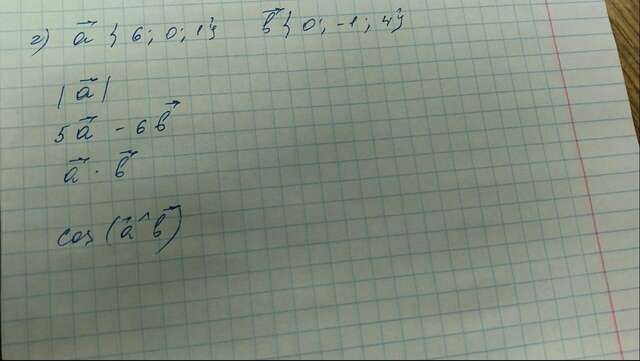 г) a⃗ {6; 0; 1} b⃗ {0; -1; 4}
|a⃗|
5a⃗ - 6b⃗
a⃗ · b⃗
cos (a⃗ ^ b⃗)